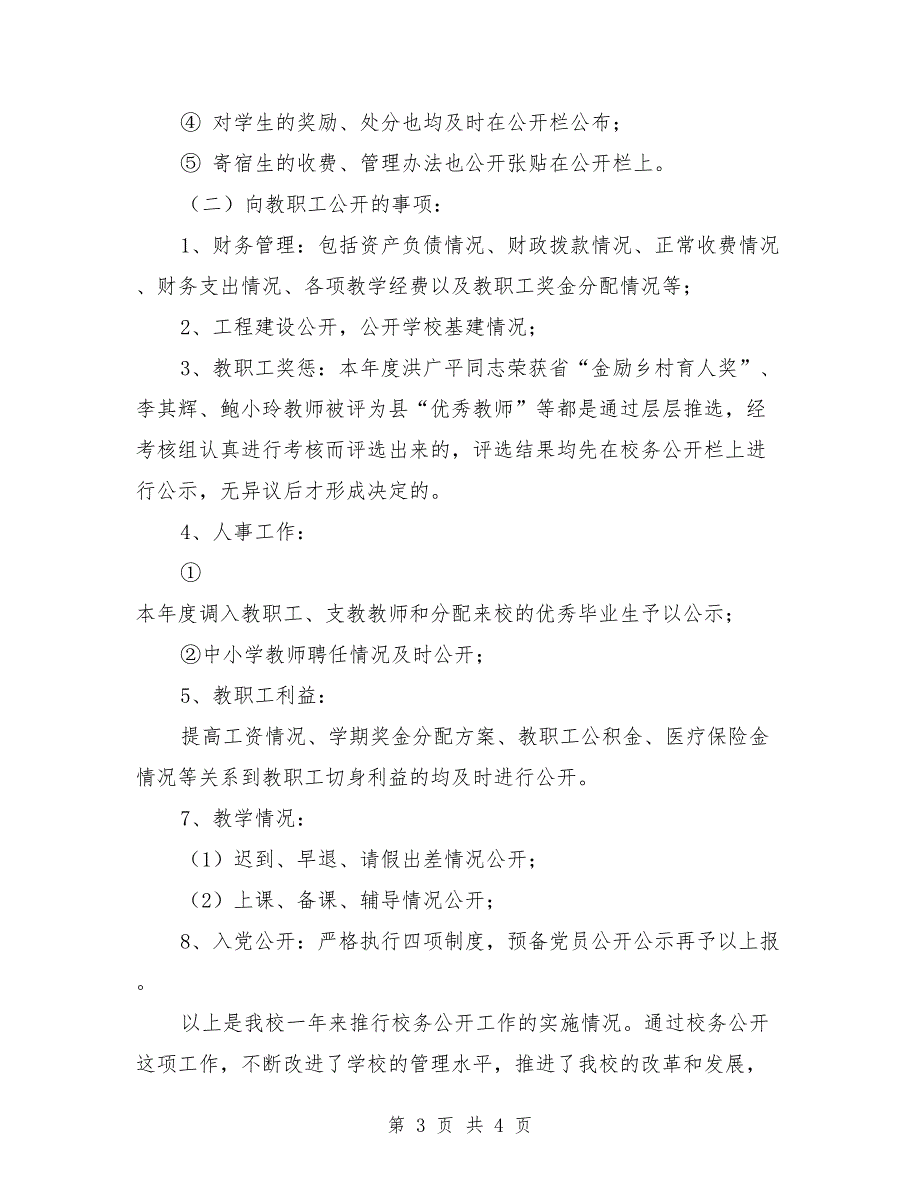 ④ 对学生的奖励、处分也均及时在公开栏公布；
⑤ 寄宿生的收费、管理办法也公开张贴在公开栏上。
（二）向教职工公开的事项：
1、财务管理：包括资产负债情况、财政拨款情况、正常收费情况
、财务支出情况、各项教学经费以及教职工奖金分配情况等；
2、工程建设公开，公开学校基建情况；
3、教职工奖惩：本年度洪广平同志荣获省“金励乡村育人奖”、
李其辉、鲍小玲教师被评为县“优秀教师”等都是通过层层推选，经
考核组认真进行考核而评选出来的，评选结果均先在校务公开栏上进
行公示，无异议后才形成决定的。
4、人事工作：
①
本年度调入教职工、支教教师和分配来校的优秀毕业生予以公示；
②中小学教师聘任情况及时公开；
5、教职工利益：
提高工资情况、学期奖金分配方案、教职工公积金、医疗保险金
情况等关系到教职工切身利益的均及时进行公开。
7、教学情况：
（1）迟到、早退、请假出差情况公开；
（2）上课、备课、辅导情况公开；
8、入党公开：严格执行四项制度，预备党员公开公示再予以上报
。
以上是我校一年来推行校务公开工作的实施情况。通过校务公开
这项工作，不断改进了学校的管理水平，推进了我校的改革和发展，
第 3 页 共 4 页